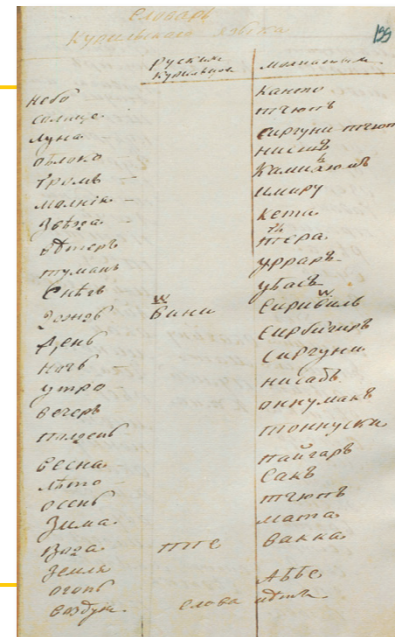 Словарь
Курильского языка
199
Руских Курильцов мохнатым
небо канто
солнце тчюпъ
луна сиргуни тчюп
облоко нисшъ
громъ камиъхюмъ
молнія имиру
звѣзда кета
вѣтеръ тѣра
туманъ уррарь
снѣгъ убась
дождь W Бини сиривиль
день сирбигиръ
ночь сиргуни
утро нисадъ
вечеръ онкуманъ
полдень тоннуски
весна пайгаръ
лѣто сакъ
осень тчюпъ
зима мата
вода пте вакка
земля
огонь Абе
воздухъ слова